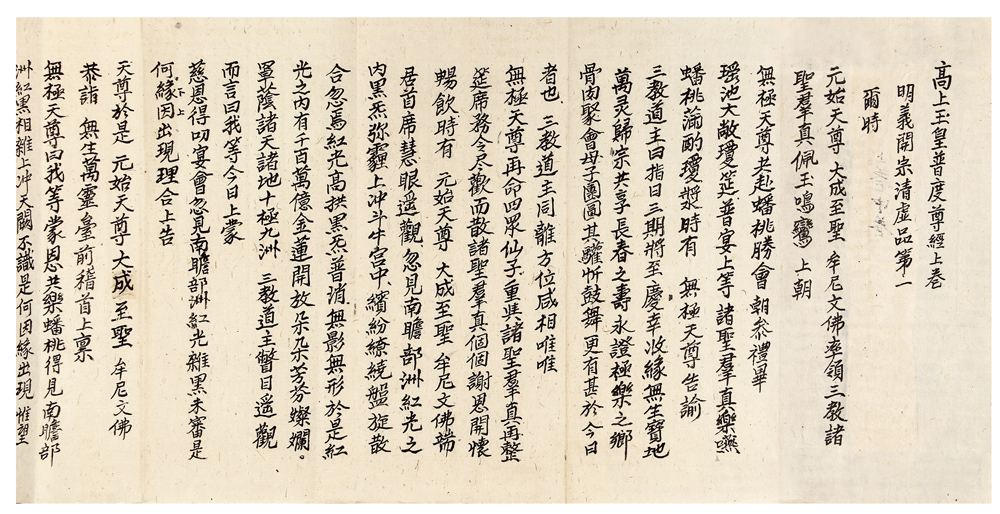 高上玉皇普度尊經上卷
明義開宗清虛品第一
爾時
元始天尊 大成至聖 牟尼文佛率領三教諸
聖羣真佩玉鳴鸞 上朝
無極天尊老赴蟠桃勝會 朝參禮畢
瑤池大敞瓊筵普宴上等 諸聖羣真樂
蟠桃滿酌瓊漿時有 無極天尊告諭
三教道主曰指日三期將至慶幸收緣無生寶地
萬灵歸宗共享長春之壽永證極樂之鄉
骨肉聚會母子團圓其驩忻鼓舞更有甚於今日
者也 三教道主同離方位咸相唯唯
無極天尊再命四眾仙子重與諸聖羣真再整
筵席務令尽歡而散諸聖羣真個個謝恩開懷
暢飲時有 元始天尊 大成至聖 牟尼文佛端
居首席慧眼遥觀忽見南瞻部洲紅光之
內黑炁弥霾上冲斗牛宮中繽紛繚繞盤旋散
合忽焉紅光高拱黑炁普消無影無形於是紅
光之內有千百萬億金蓮開放朵朵芳芬燦爛。
罩蔭諸天諸地十極九洲 三教道主瞥目遥觀
而言曰我等今日上蒙
慈恩得叨宴會忽見南瞻部洲紅光雜黑未審是
何緣因出現理合上告 下 上
天尊於是 元始天尊 大成至聖 牟尼文佛
恭詣 無生萬靈臺前稽首上稟
無極天尊曰我等蒙恩共樂蟠桃得見南瞻部
洲紅黑相雜上冲天闕不識是何因緣出現 惟望